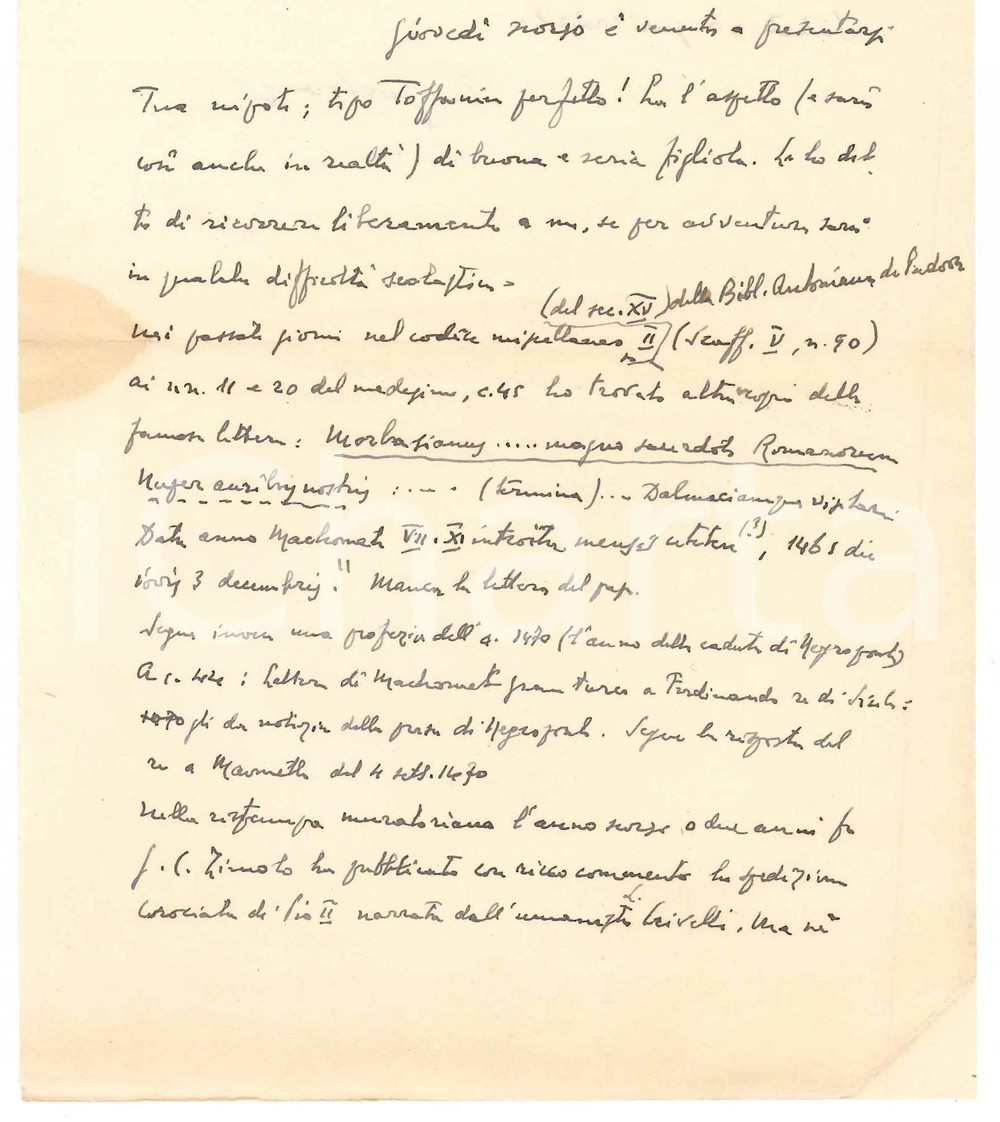 Giovedì scorso è venuta a presentarsi
Tua nipote; tipo Toffanin perfetto! ha l'aspetto (e sarà
così anche in realtà) di buona e seria figliola. Le ho det-
to di ricorrere liberamente a me, se per avventura sarà
in qualche difficoltà scolastica =
(del sec. XV) della Bibl. Antoniana di Padova
Nei passati giorni nel codice miscellaneo II (Scaff. V, n. 90)
ai nn. 11 e 20 del medesimo, c. 45 ho trovato altra copia della
famosa lettera: Morbasianus ..... magno sacerdoti Romanorum
Nuper auribus nostris :... (termina)... Dalmaciamque
Data anno Machometi VII. XI introitu mensis (?), 1465 die
iovis 3 decembris." Manca la lettera del papa.
Segue invece una profezia dell'a. 1470 (l'anno della caduta di Negroponte)
A c. : Lettera di Machomet gran turco a Ferdinando re di Sicilia:
1470 gli da notizia della presa di Negroponte. Segue la risposta del
re a Maometto del 4 sett. 1470
Nella ristampa muratoriana l'anno scorso o due anni fa
G. C. Zimolo ha pubblicato con ricco commento la spedizione
crociata di Pio II narrata dall'umanista Crivelli, Ma nè